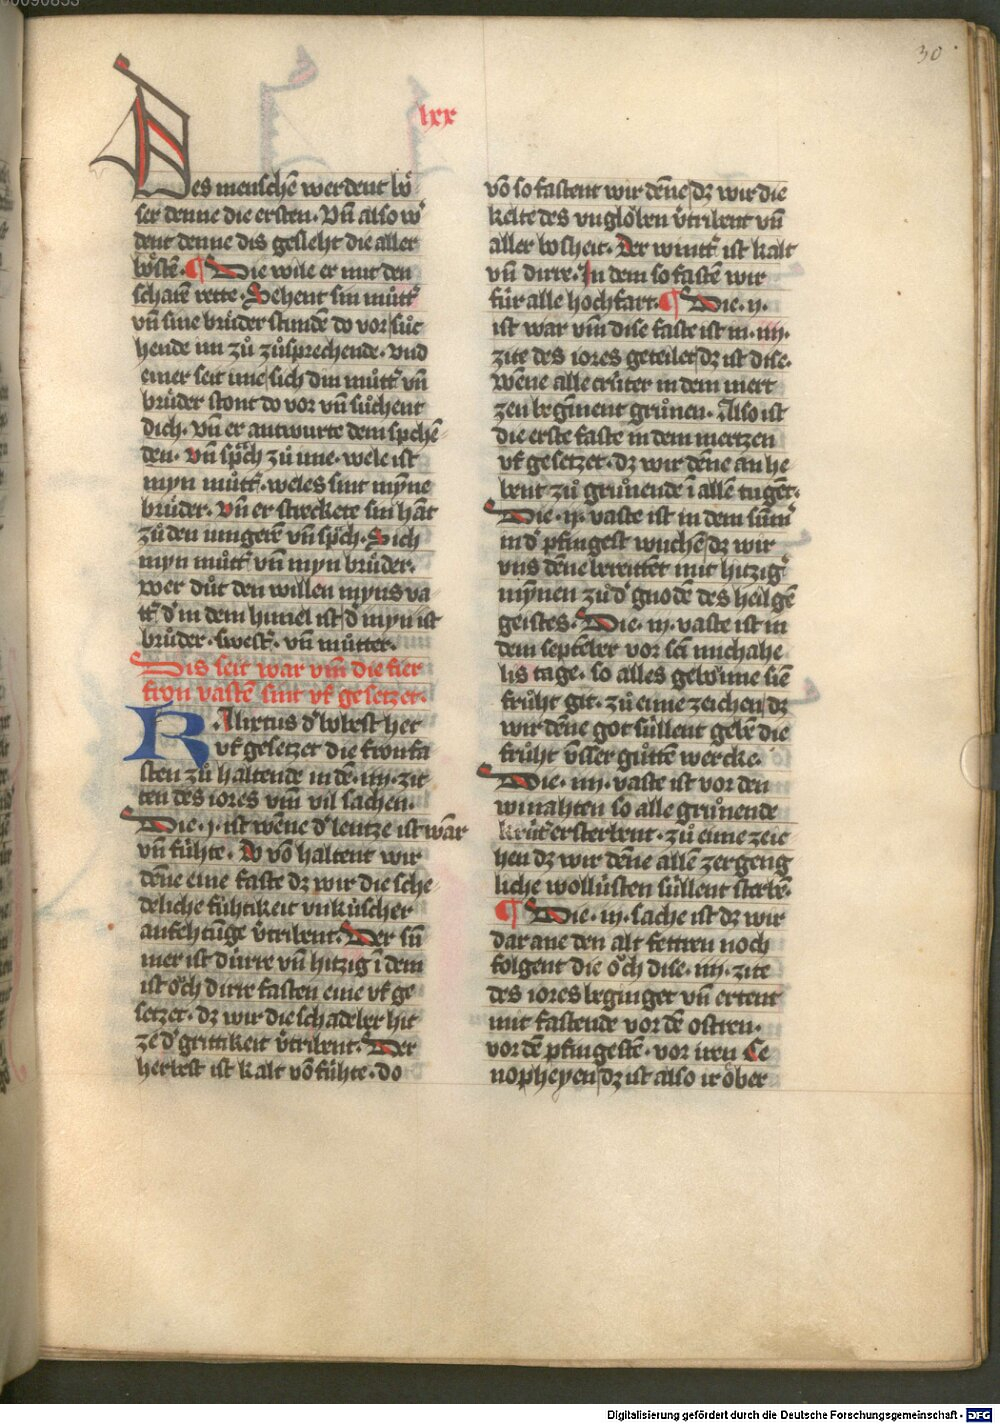 30
lxx
Des menschē werdent bö
ser denne die ersten. Vn̄ also w᷑
dent denne dis gesleht die aller
bösten. ¶ Die wile er mit den
scharē rette. Sehent sin můtt᷑
vn̄ sine brůder stundē do vor sůc
hende im zů zůsprechende. vnd
einer seit ime sich din můtt᷑ vn̄
brůder stont do vor vn̄ sůchent
dich. vn̄ er antwurte dem spchē
den. vn̄ sp̄ch zů ime. wele ist
myn můtt᷑. weles sint myne
brůder. vn̄ er streckete sin hāt
zů den iungerē vn̄ sp̄ch. Sich
myn můtt᷑ vn̄ myn brůder.
wer důt den willen myns va
tt᷑ d᷑ in dem himel ist d᷑ myn ist
brůder. swest᷑. vn̄ můtter.
Dis seit war vm̄ die fier
fron vastē sint vf gesetzet.
Kalixtus d᷑ bobest het
vf gesetzet die fronfa
sten zů haltende in dē. iiij. zit
ten des iores vm̄ vil sachen.
Die .j. ist wēne d᷑ lentze ist wār
vn̄ fühte. Do vō haltent wir
dēne eine faste dz wir die sche
deliche fühtikeit vnkůscher
anfehtūge v᷑tribent. Der sū
mer ist dürre vn̄ hitzig ī dem
ist öch dirre fasten eine vf ge
setzet. dz wir die schadeber hit
ze d᷑ grittikeit v᷑tribent. Der
herbest ist kalt vō fühte. do
vō so fastent wir dēne dz wir die
kelte des vnglöben v᷑tribent vn̄
aller bosheit. Der wintt᷑ ist kalt
vn̄ dirre. In dem so fastē wir
für alle hochfart. ¶ Die .ij.
ist war vm̄ dise faste ist in .iiij.
zite des iores geteilet dz ist dise.
Wēne alle crüter in dem mert
zen begīnent grůnen. Also ist
die erste faste in dem mertzen
vf gesetzet. dz wir dēne an he
bent zů grůnende ī allē tugēt.
Die .ij. vaste ist in dem sūm᷑
in d᷑ pfingest wuchē dz wir
vns dēne bereittēt mit hitzig᷑
mynen zů d᷑ gnode des heilgē
geistes. Die .iij. vaste ist in
dem septēber vor sct̄ michahe
lis tage. so alles gewinne sīe
früht git. zů eime zeichen dz
wir dēne got süllent gebē die
früht v̄sser gůttē wercke.
Die .iiij. vaste ist vor den
winahten so alle grůnende
krüt᷑ ersterbent. zů eime zeic
hen dz wir dēne allē zergeng
liche wollüsten süllent sterbē.
¶ Die .iij. sache ist dz wir
dar ane den alt fettren noch
folgent die öch dise .iiij. zite
des iores beginget vn̄ ertent
mit fastende vor dē ostren.
vor dē pfingestē. vor iren Ce
nopheyen dz ist also ir öber
Digitalisierung gefördert durch die Deutsche Forschungsgemeinschaft - DFG